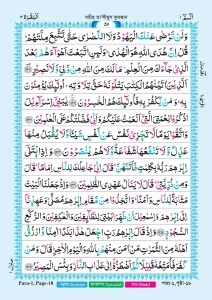 البقرة ٢
২০
الٓمّٓ ١
وَلَنْ تَرْضٰى عَنْكَ الْيَهُوْدُ وَلَا النَّصٰرٰى حَتّٰى تَتَّبِعَ مِلَّتَهُمْ ؕ
قُلْ اِنَّ هُدَى اللّٰهِ هُوَ الْهُدٰى ؕ وَلَئِنِ اتَّبَعْتَ اَهْوَآءَهُمْ بَعْدَ
الَّذِيْ جَآءَكَ مِنَ الْعِلْمِ ۙ مَا لَكَ مِنَ اللّٰهِ مِنْ وَّلِيٍّ وَّلَا نَصِيْرٍ
اَلَّذِيْنَ اٰتَيْنٰهُمُ الْكِتٰبَ يَتْلُوْنَهٗ حَقَّ تِلَاوَتِهٖ ؕ اُولٰٓئِكَ يُؤْمِنُوْنَ
بِهٖ ؕ وَمَنْ يَّكْفُرْ بِهٖ فَاُولٰٓئِكَ هُمُ الْخٰسِرُوْنَ يٰبَنِيْٓ اِسْرَآءِيْلَ
اذْكُرُوْا نِعْمَتِيَ الَّتِيْٓ اَنْعَمْتُ عَلَيْكُمْ وَاَنِّيْ فَضَّلْتُكُمْ عَلَى الْعٰلَمِيْنَ
وَاتَّقُوْا يَوْمًا لَّا تَجْزِيْ نَفْسٌ عَنْ نَّفْسٍ شَيْئًا وَّلَا يُقْبَلُ مِنْهَا
عَدْلٌ وَّلَا تَنْفَعُهَا شَفَاعَةٌ وَّلَا هُمْ يُنْصَرُوْنَ وَاِذِ ابْتَلٰٓى
اِبْرٰهٖمَ رَبُّهٗ بِكَلِمٰتٍ فَاَتَمَّهُنَّ ؕ قَالَ اِنِّيْ جَاعِلُكَ لِلنَّاسِ اِمَامًا ؕ
قَالَ وَمِنْ ذُرِّيَّتِيْ ؕ قَالَ لَا يَنَالُ عَهْدِي الظّٰلِمِيْنَ وَاِذْ جَعَلْنَا الْبَيْتَ
مَثَابَةً لِّلنَّاسِ وَاَمْنًا ؕ وَاتَّخِذُوْا مِنْ مَّقَامِ اِبْرٰهٖمَ مُصَلًّى ؕ وَعَهِدْنَآ
اِلٰٓى اِبْرٰهٖمَ وَاِسْمٰعِيْلَ اَنْ طَهِّرَا بَيْتِيَ لِلطَّآئِفِيْنَ وَالْعٰكِفِيْنَ وَالرُّكَّعِ
السُّجُوْدِ وَاِذْ قَالَ اِبْرٰهٖمُ رَبِّ اجْعَلْ هٰذَا بَلَدًا اٰمِنًا وَّارْزُقْ
اَهْلَهٗ مِنَ الثَّمَرٰتِ مَنْ اٰمَنَ مِنْهُمْ بِاللّٰهِ وَالْيَوْمِ الْاٰخِرِ ؕ قَالَ وَمَنْ
كَفَرَ فَاُمَتِّعُهٗ قَلِيْلًا ثُمَّ اَضْطَرُّهٗٓ اِلٰى عَذَابِ النَّارِ ؕ وَبِئْسَ الْمَصِيْرُ
Para-1, Page-18
পারা-১, পৃষ্ঠা-১৮